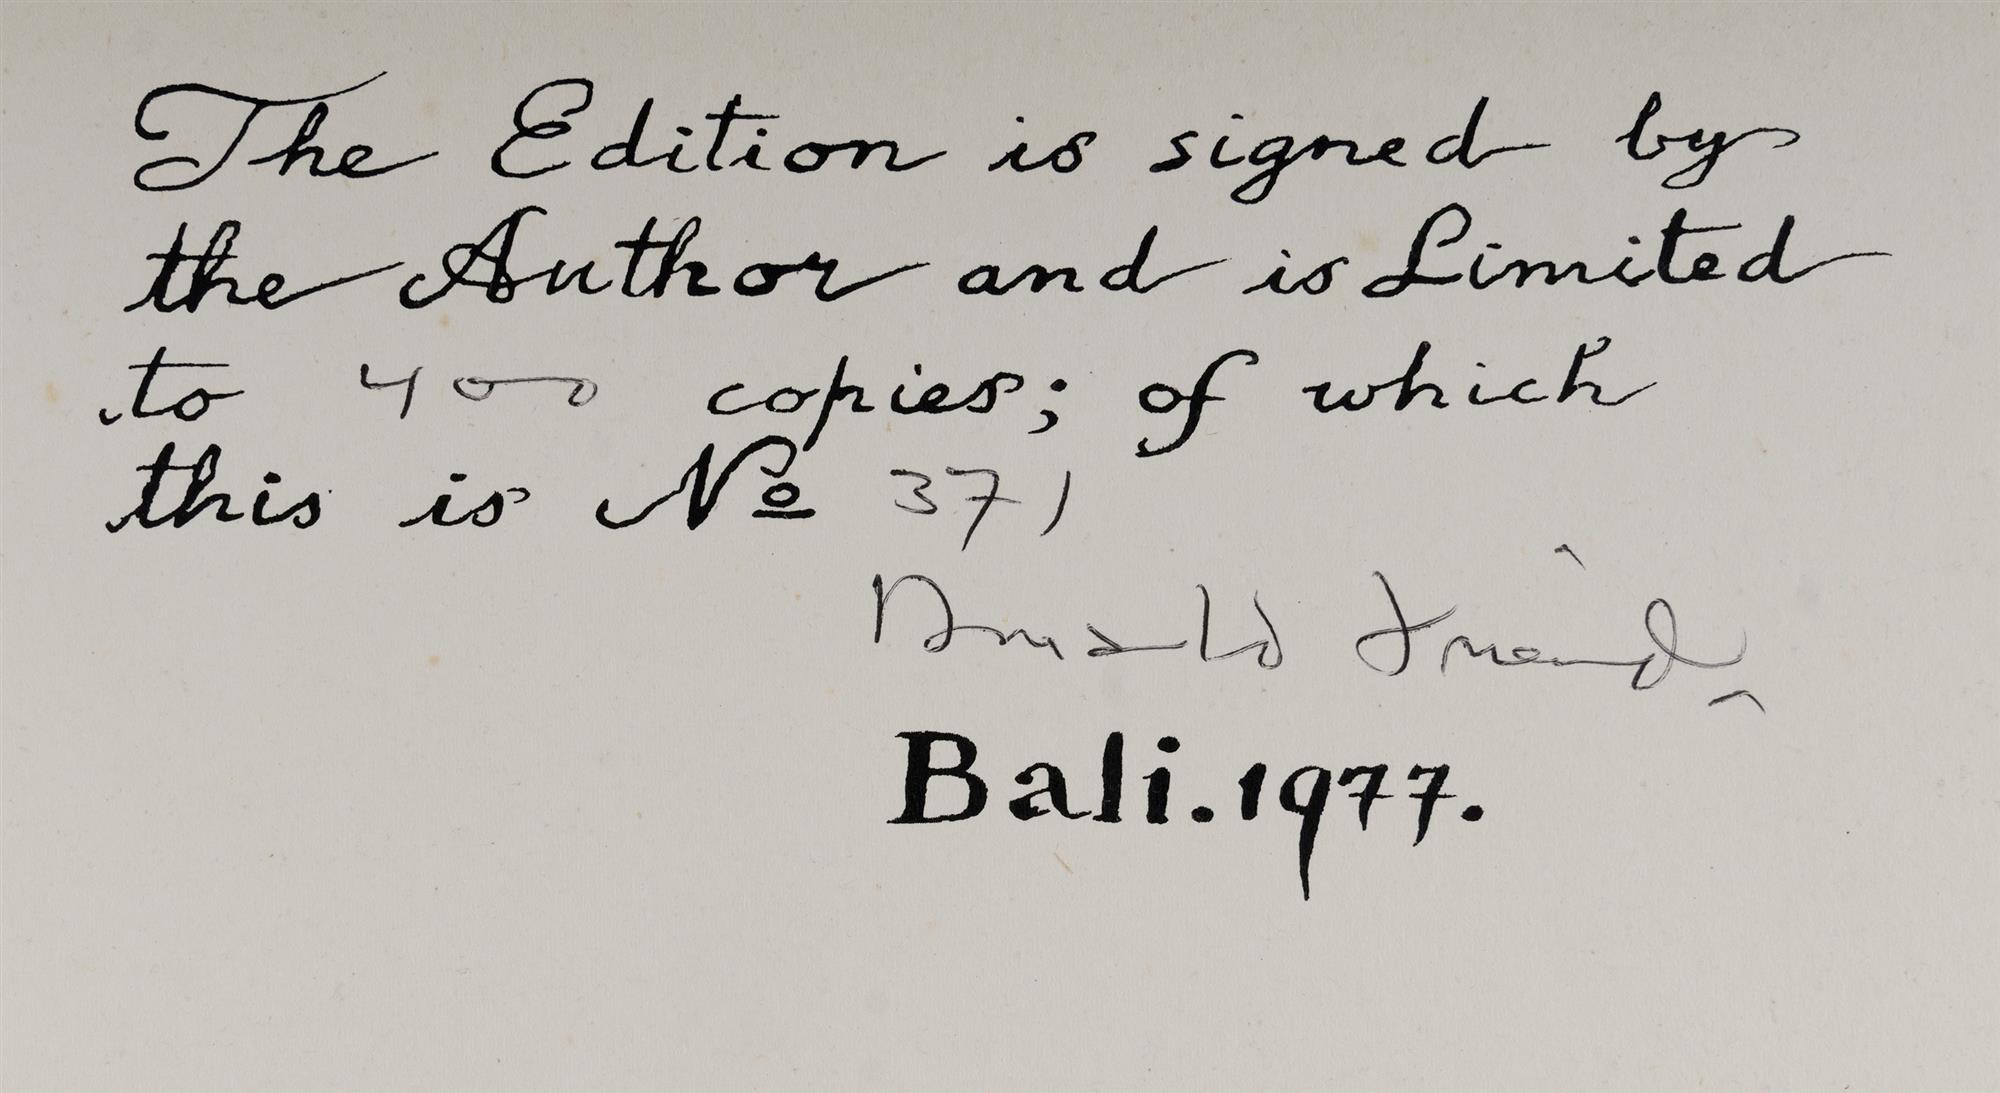 The Edition is signed by
the Author and is Limited
to 400 copies; of which
this is Nº 371
Donald Friend
Bali.1977.